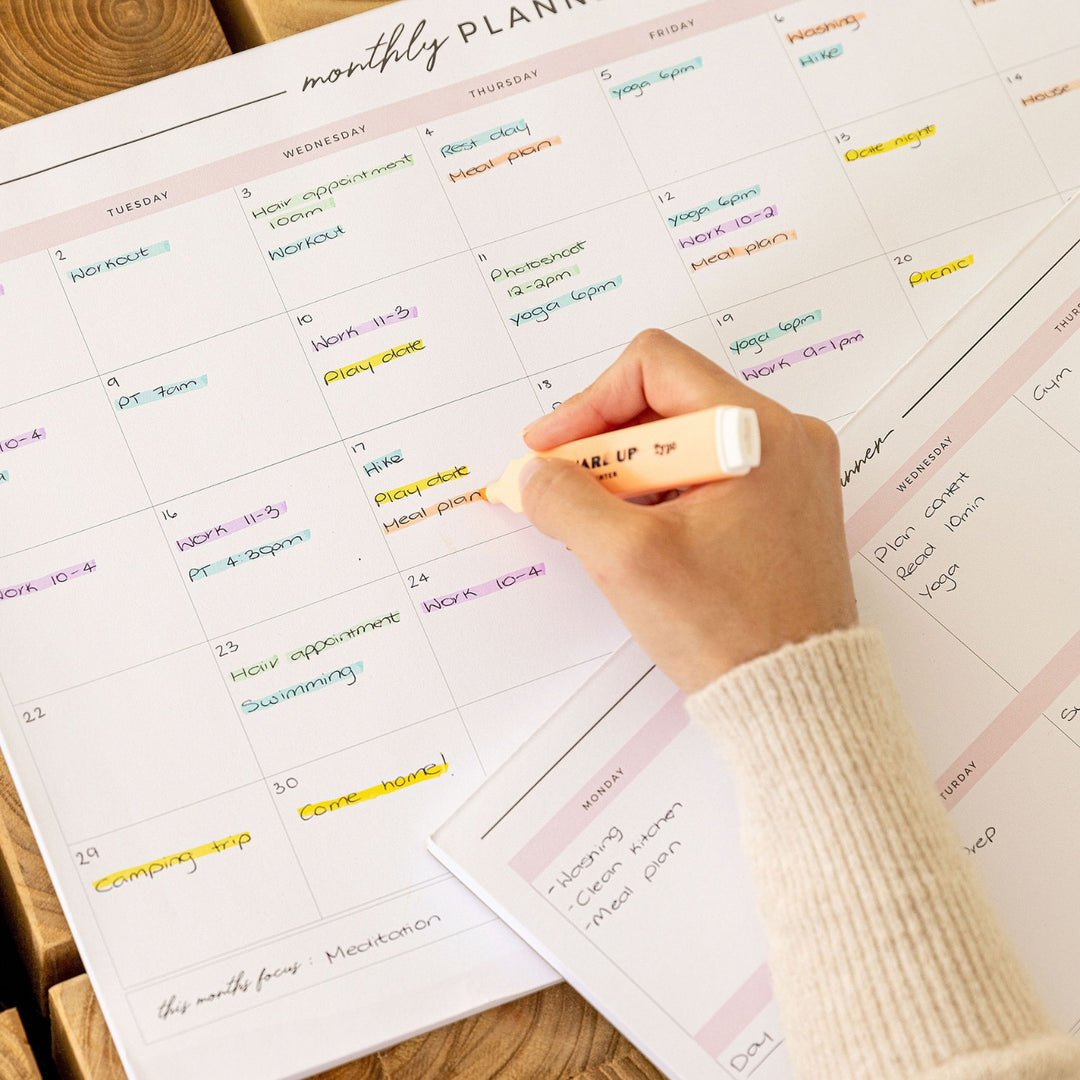 monthly
TUESDAY
WEDNESDAY
THURSDAY
FRIDAY
2
Workout
3
Hair appointment
10am
Workout
4
Rest day
Meal plan
5
yoga 6pm
6
Washing
Hike
10-4
9
PT 7am
10
Work 11-3
Play date
11
Photoshoot
12-2pm
yoga 6pm
12
yoga 6pm
Work 10-2
Meal plan
13
Date night
14
House
Work 10-4
16
Work 11-3
PT 4:30pm
17
Hike
Play date
Meal plan
18
19
yoga 6pm
Work 9-1pm
20
Picnic
22
23
Hair appointment
Swimming
24
Work 10-4
29
Camping trip
30
Come home!
this months focus : Meditation
UP type
WEDNESDAY
Plan content
Read 10min
yoga
Gym
MONDAY
-Washing
-Clean kitchen
-Meal plan
Day